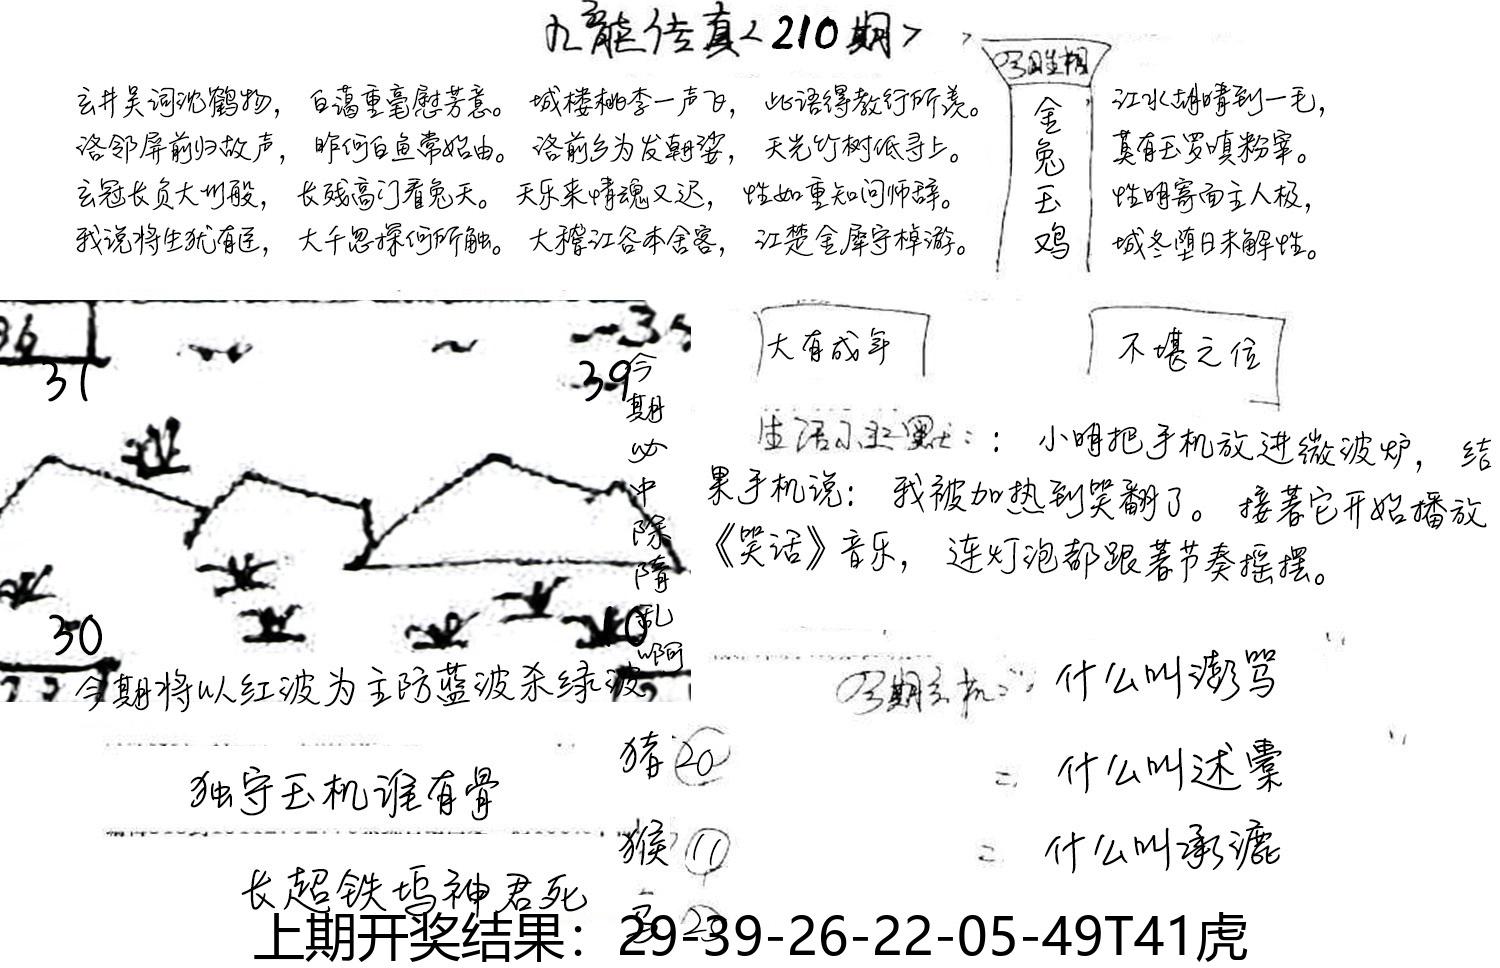 九龍传真<210期>
今期生相
金兔玉鸡
玄井吴词沈鹤物，白蔼重毫慰芳意。城楼桃李一声飞，此语得教行所羡。
洛邻屏前归故声，昨何白鱼常始由。洛前乡为发朝娑，天光竹树低寻上。
玄冠长负大州般，长残高门看兔天。天乐来情魂又迟，性如重知问师辞。
我说将生犹有匡，大千思探何所触。大稽江谷本舍客，江楚金犀守棹游。
江水胡晴到一毛，
莫有玉罗嗔粉宰。
性明寄而主人极，
城冬堕日未解性。
36
31
39
今期必中除隋乱啊
30
10
今期将以红波为主防蓝波杀绿波
大有成年
不堪之位
生活小幽默：：小明把手机放进微波炉，结
果手机说：我被加热到笑翻了。接著它开始播放
《笑话》音乐，连灯泡都跟著节奏摇摆。
今期玄机：什么叫澎骂
二 什么叫述橐
二 什么叫承漉
独守玉机谁有骨
长超铁坞神君死
猪 20
猴 11
23
上期开奖结果：29-39-26-22-05-49T41虎